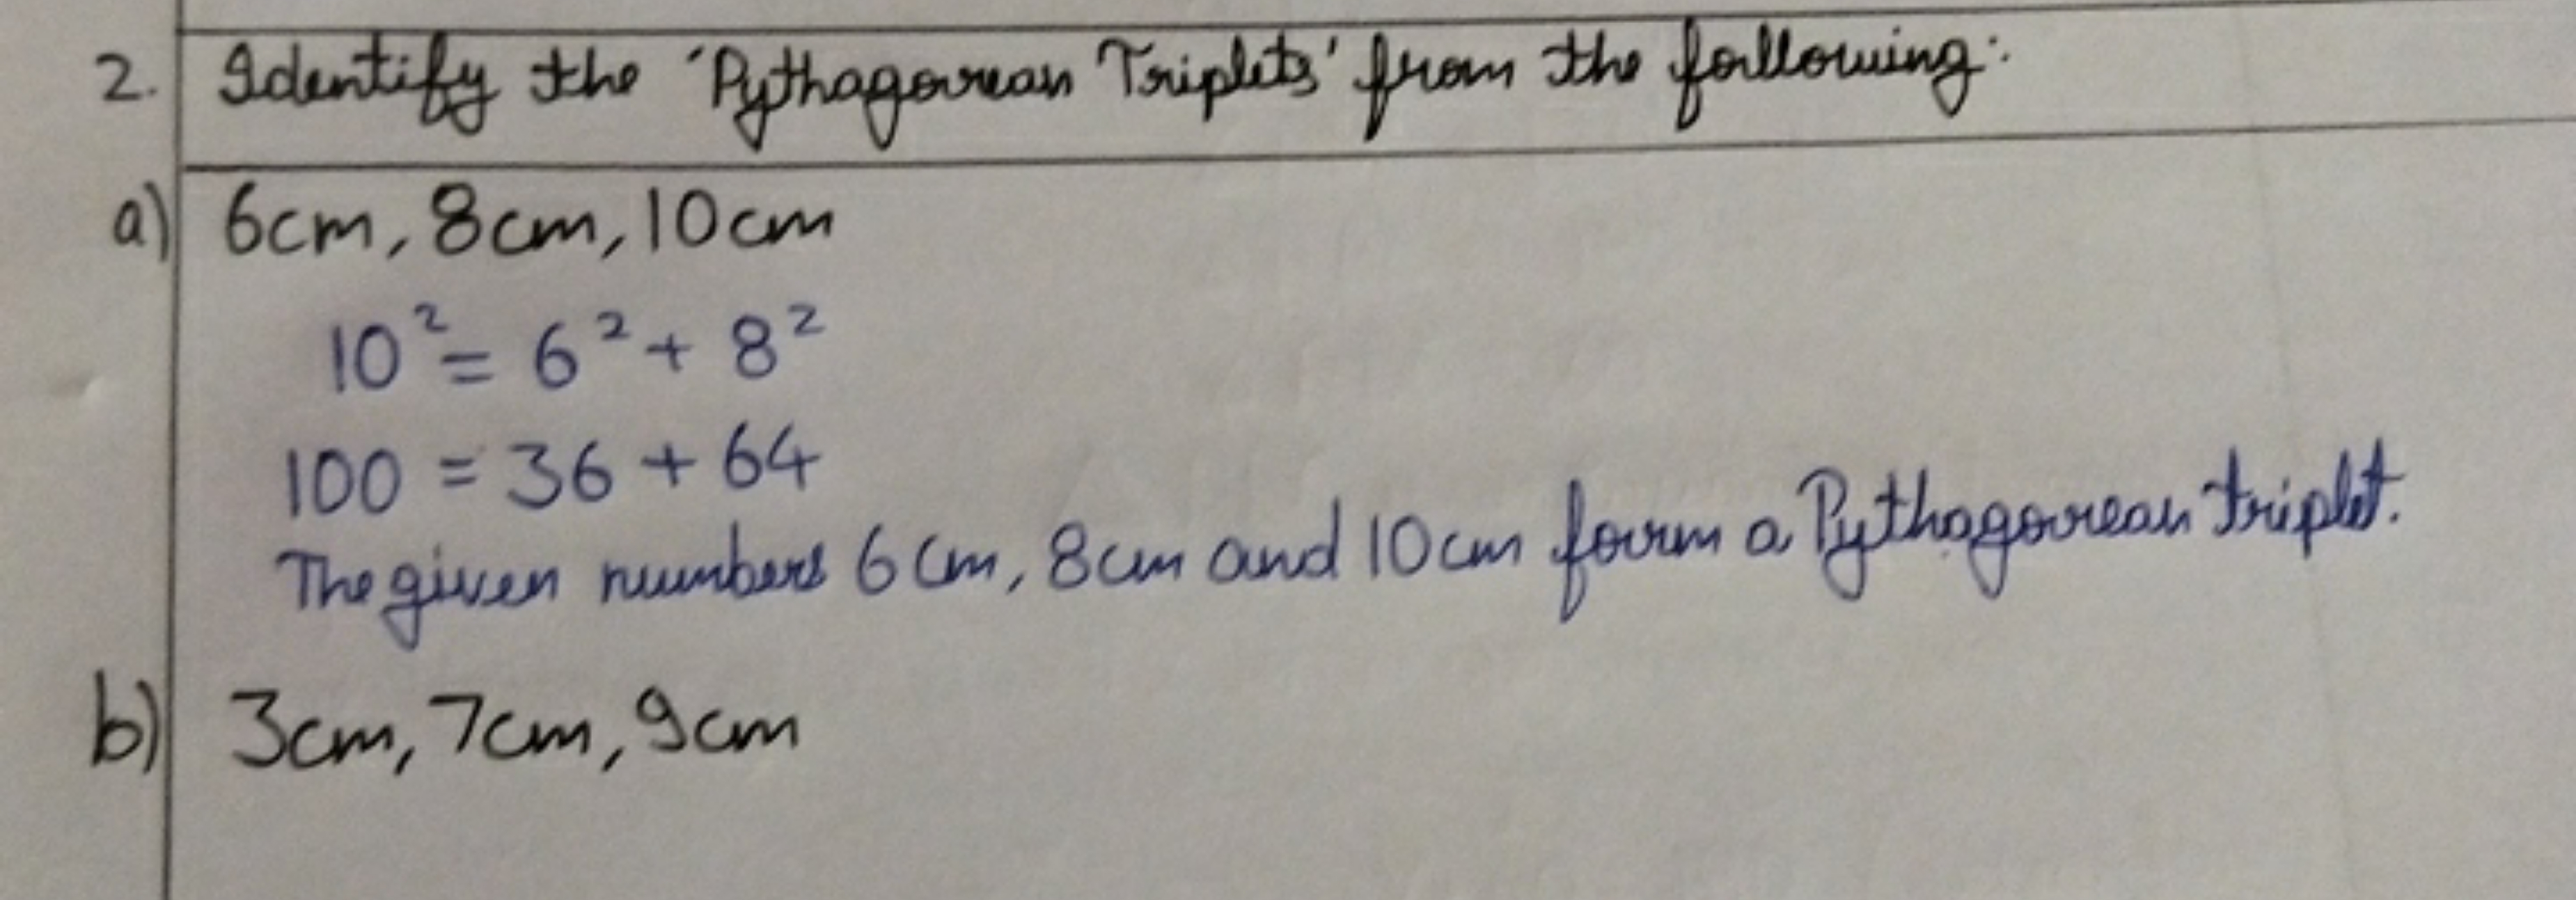 2. Identify the 'Pythagorean Triplets' from the following:
a) 6cm, 8cm, 10cm
10² = 6² + 8²
100 = 36 + 64
The given numbers 6cm, 8cm and 10cm form a Pythagorean triplet.
b) 3cm, 7cm, 9cm